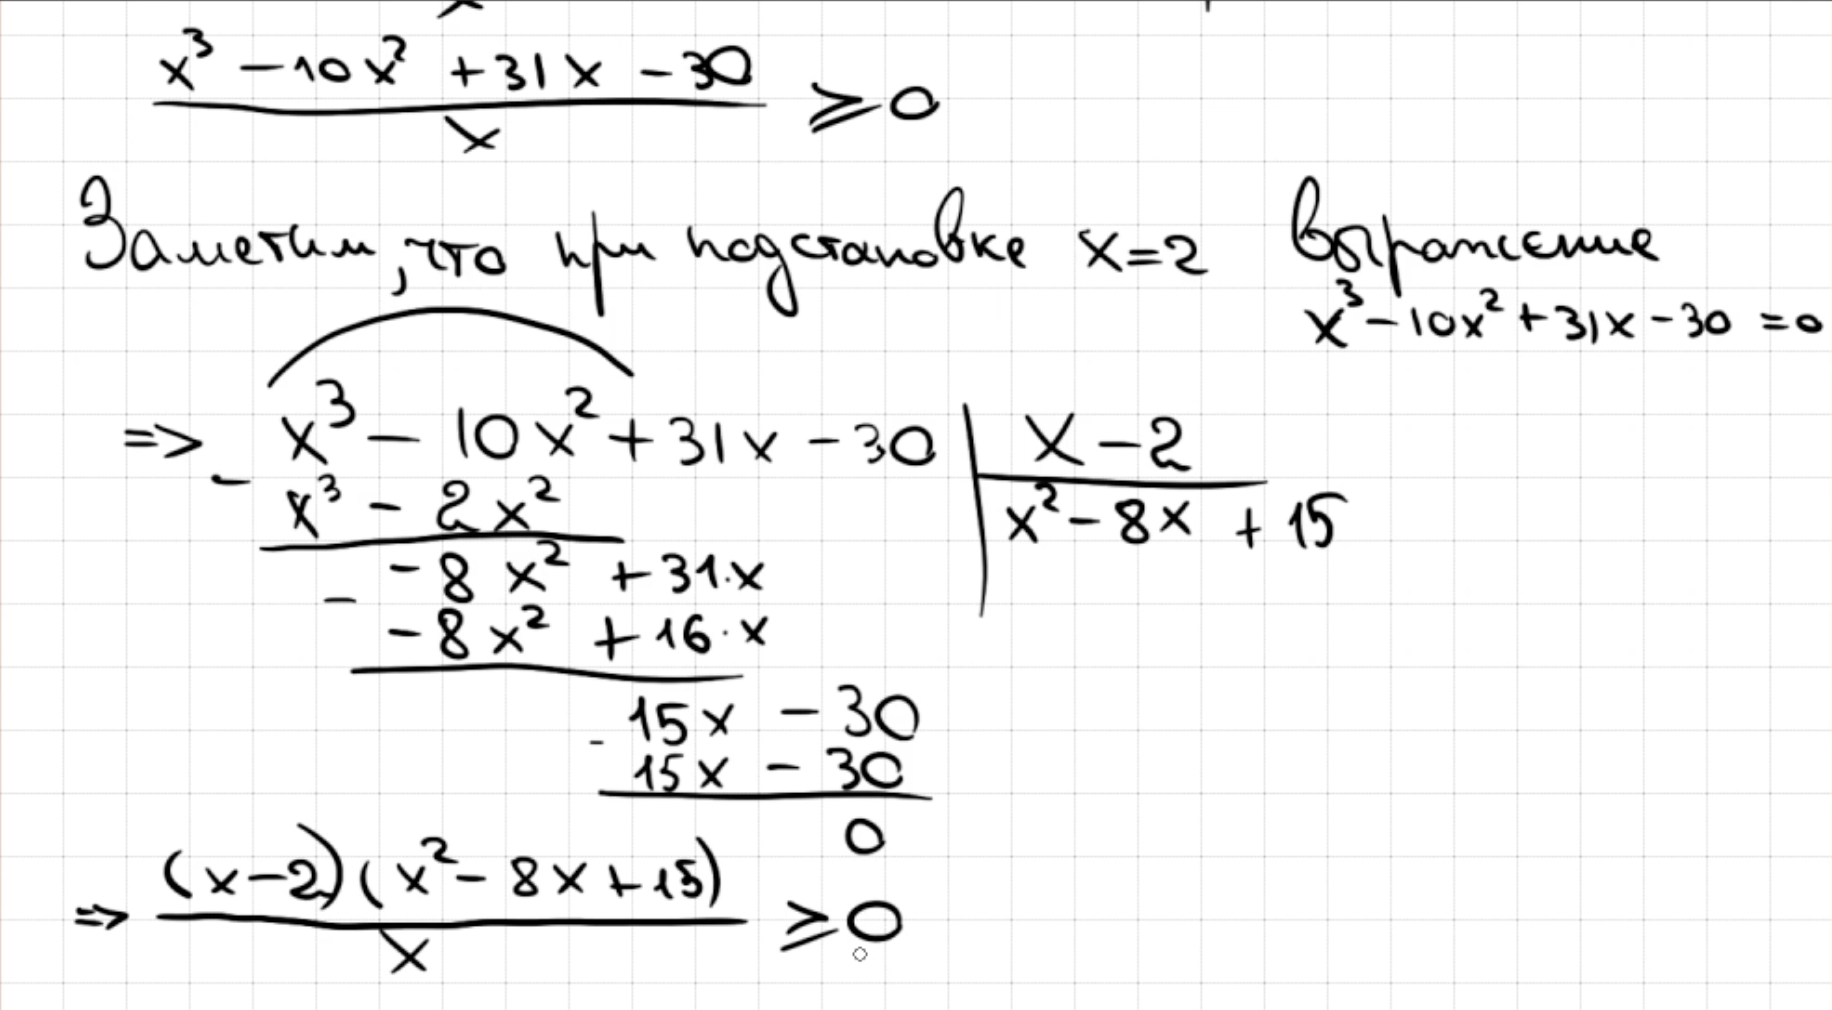 x³ - 10x² + 31x - 30
x
≥ 0
Заметим, что при подстановке x=2 выражение
x³ - 10x² + 31x - 30 = 0
=> x³ - 10x² + 31x - 30 | x - 2
- x³ - 2x² | x² - 8x + 15
- 8x² + 31·x
- - 8x² + 16·x
15x - 30
- 15x - 30
0
=> (x-2)(x² - 8x + 15)
x
≥ 0